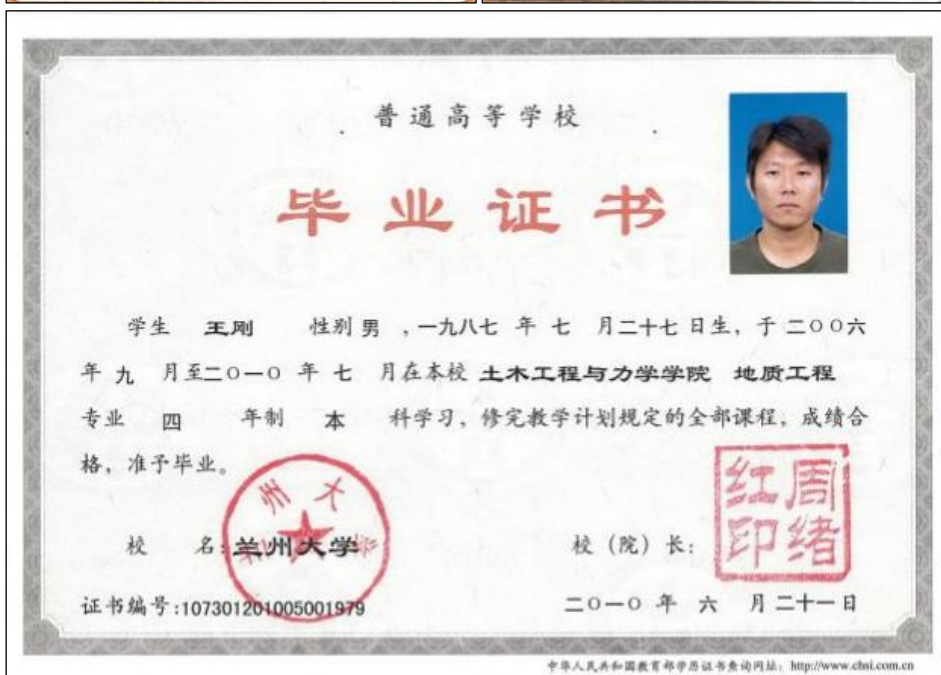 普通高等学校
毕业证书
学生 王刚 性别 男 ,一九八七 年 七 月二十七 日生, 于 二〇〇六
年 九 月至二〇一〇 年 七 月在本校 土木工程与力学学院 地质工程
专业 四 年制 本 科学习, 修完教学计划规定的全部课程, 成绩合
格, 准予毕业。
校 名: 兰州大学
兰州大学
校(院)长:
周绪红印
证书编号:107301201005001979
二〇一〇 年 六 月 二十一 日
中华人民共和国教育部学历证书查询网址: http://www.chsi.com.cn